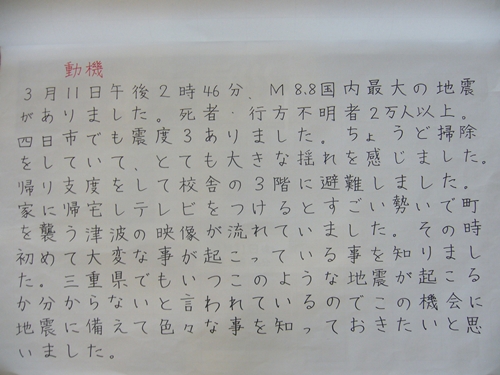 動機
3月11日午後2時46分、M8.8国内最大の地震
がありました。死者・行方不明者2万人以上。
四日市でも震度3ありました。ちょうど掃除
をしていて、とても大きな揺れを感じました。
帰り支度をして校舎の3階に避難しました。
家に帰宅しテレビをつけるとすごい勢いで町
を襲う津波の映像が流れていました。その時
初めて大変な事が起こっている事を知りまし
た。三重県でもいつこのような地震が起こる
か分からないと言われているのでこの機会に
地震に備えて色々な事を知っておきたいと思
いました。